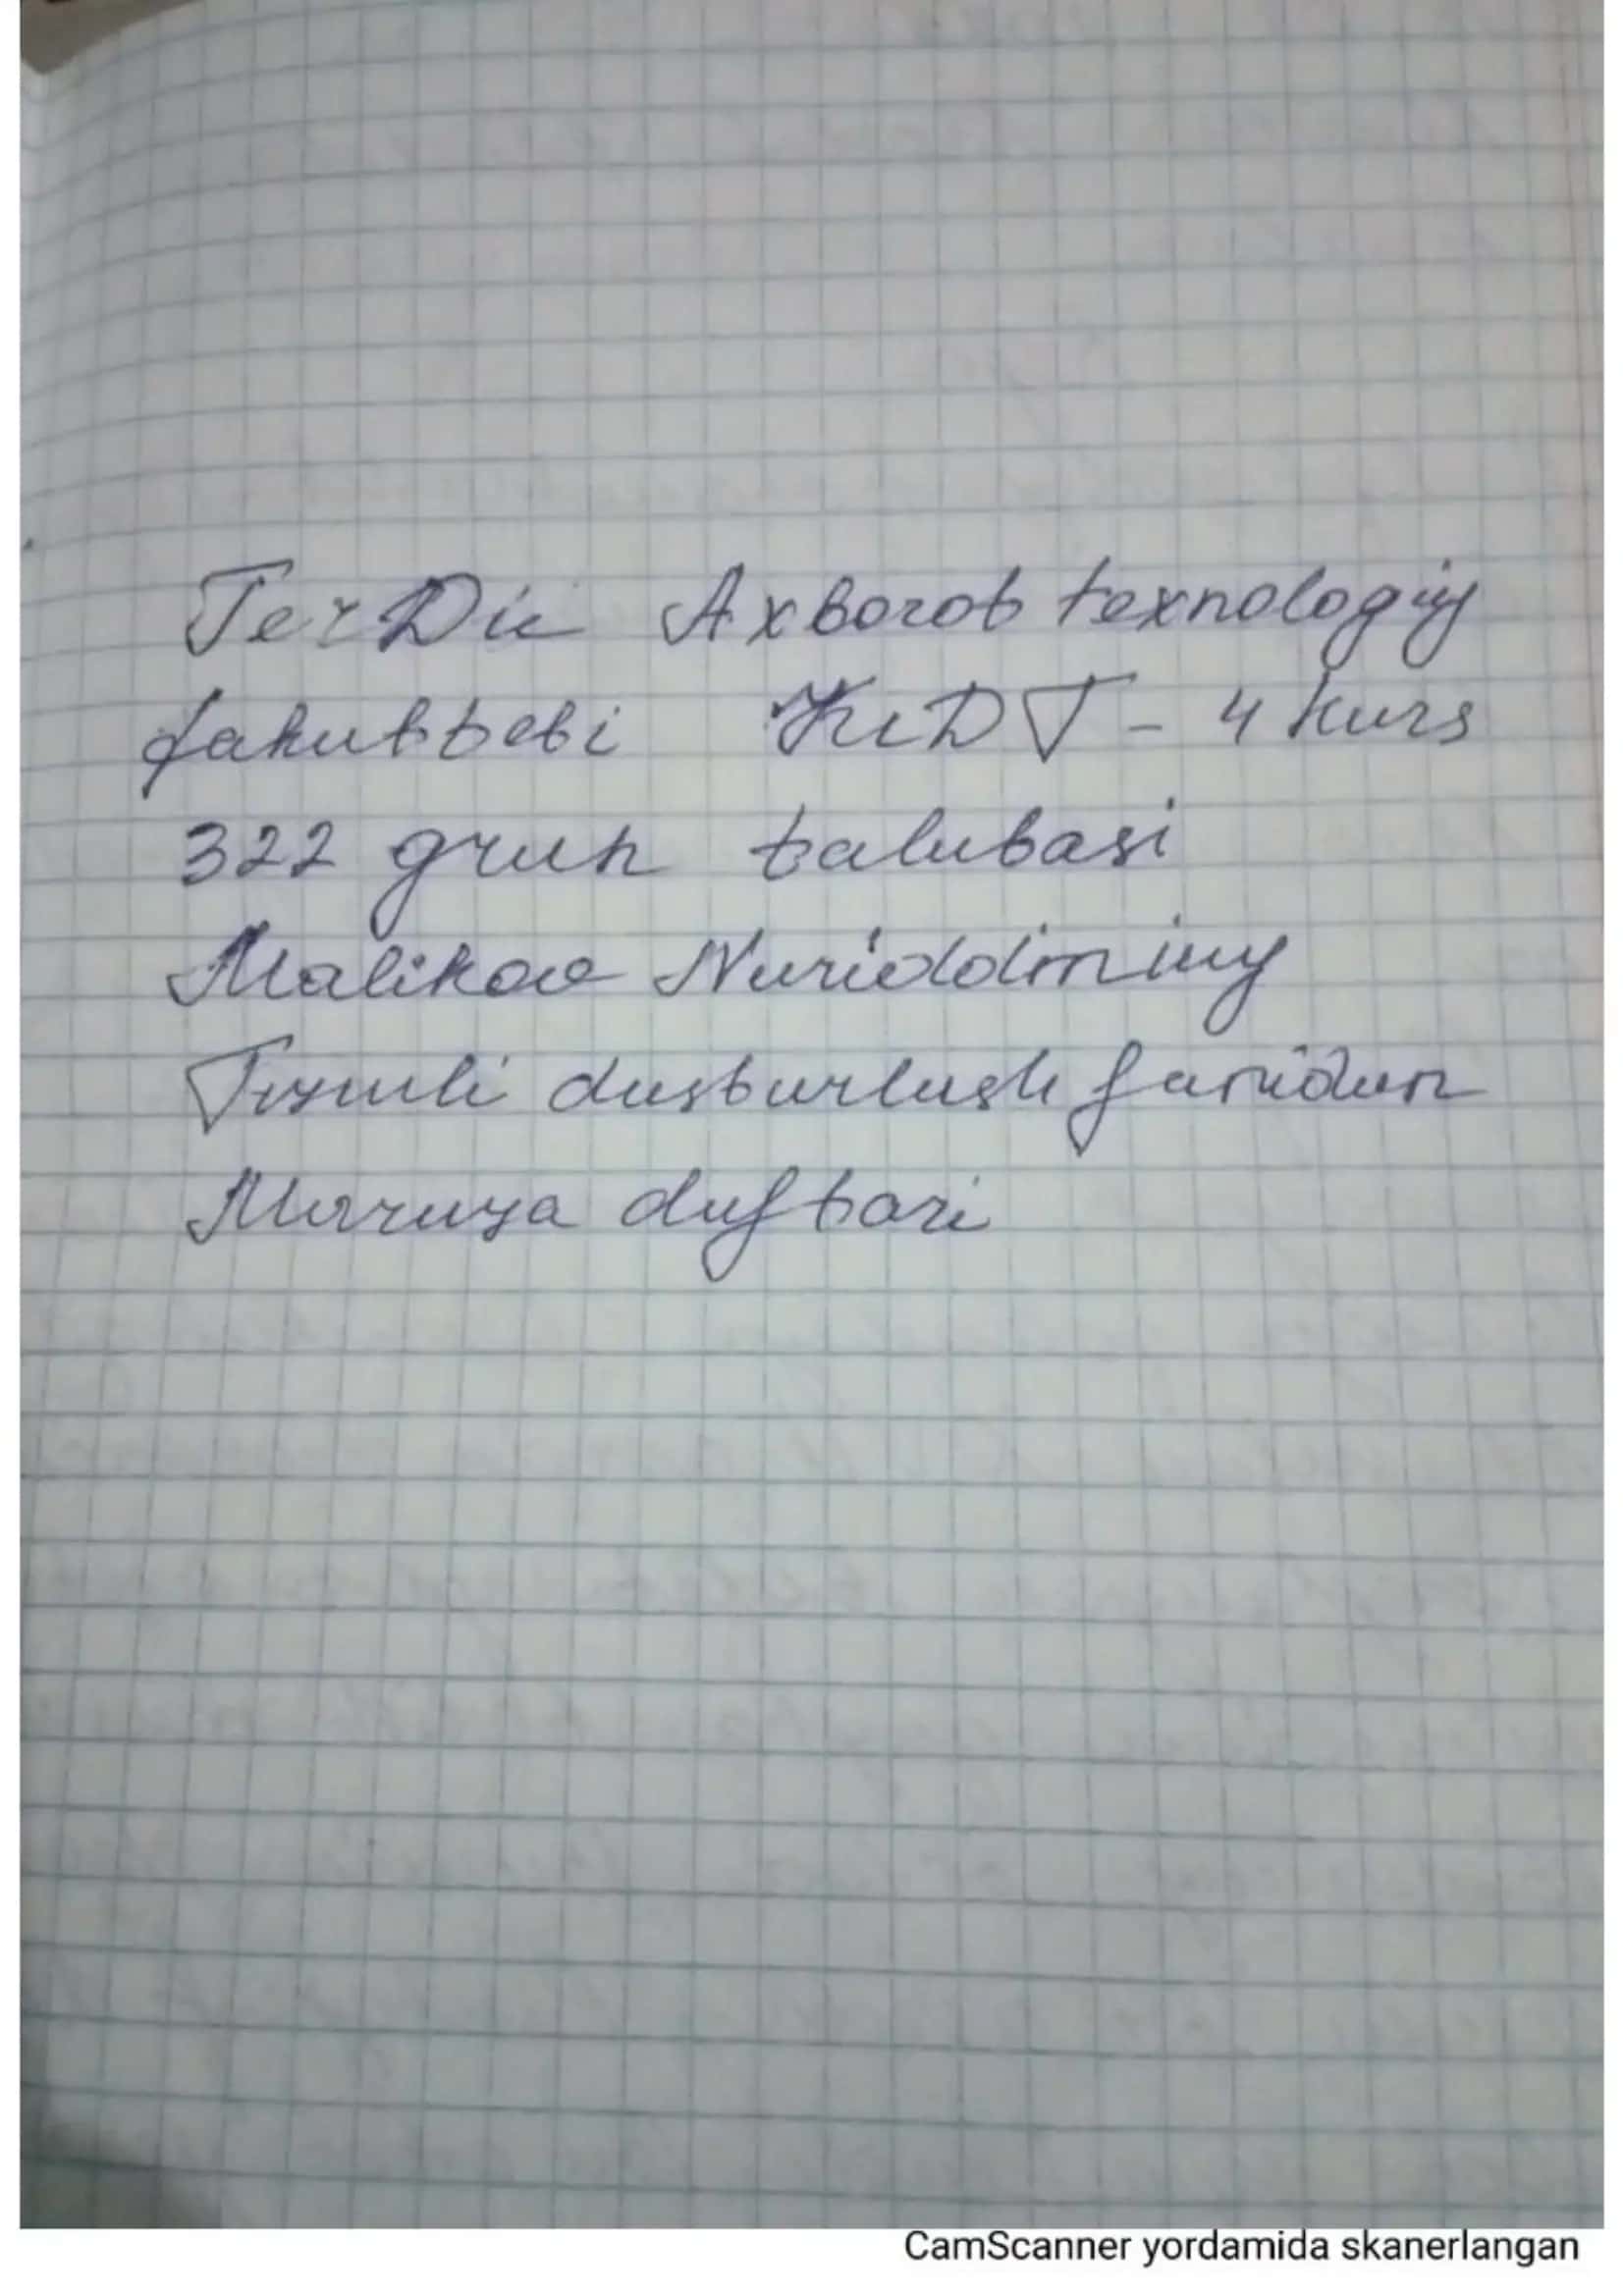 TerDU Axborot texnologiy
fakulteti KIDT - 4 kurs
322 gruh talabasi
Malikov Nuriddinning
Tizimli dasturlash fanidan
Maruza daftari
CamScanner yordamida skanerlangan